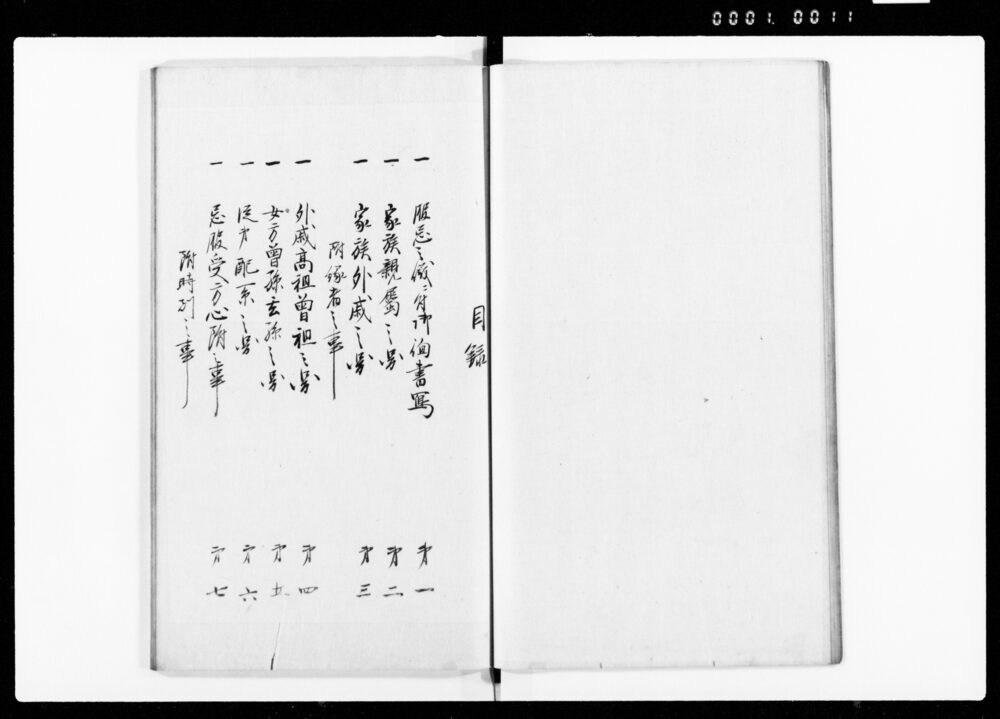 0001.0011
目録
一 服忌之儀ニ付御伺書写 第一
一 家族親属之帰 第二
一 家族外戚之帰 第三
附縁者之事
一 外戚高祖曽祖之帰 第四
一 女方曽孫玄孫之帰 第五
一 従方配系之帰 第六
一 忌服受方心附之事 第七
附時刻之事